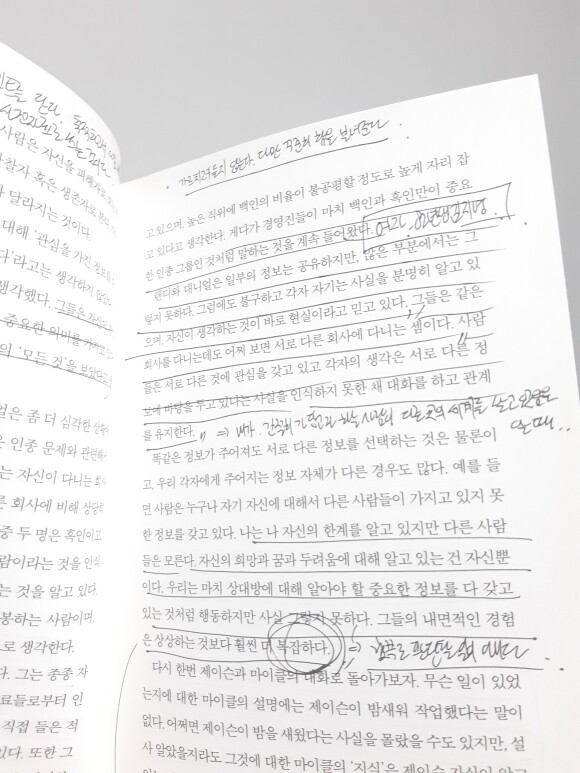 사람은 자신을 피해자로
찰자 혹은 생존자로
달라지는 것이다
대해 '관심을 가진 정보를
다'라고는 생각하지 않았
생각했다. 그들은 자신의
중요한 의미를 가지고
의 '모든 것'을 보았다고
얼은 좀 더 심각한 상황
은 인종 문제와 관련해서
는 자신이 다니는
른 회사에 비해 상당히
중 두 명은 흑인이고
람이라는 것을 인식
는 것을 알고 있다.
봉하는 사람이며,
로 생각한다.
다. 그는 종종 자
료들로부터 인
직접 들은 적
있다. 또한 그
가르치려들지 않는다. 다만 직존의 힘을 보여준다.
고 있으며, 높은 직위에 백인의 비율이 불공평할 정도로 높게 자리 잡
고 있다고 생각한다. 게다가 경영진들이 마치 백인과 흑인만이 중요
한 인종 그룹인 것처럼 말하는 것을 계속 들어왔다.
랜디와 대니얼은 일부의 정보는 공유하지만, 많은 부분에서는 그
렇지 못하다. 그럼에도 불구하고 각자 자기는 사실을 분명히 알고 있
으며, 자신이 생각하는 것이 바로 현실이라고 믿고 있다. 그들은 같은
회사를 다니는데도 어찌 보면 서로 다른 회사에 다니는 셈이다. 사람
들은 서로 다른 것에 관심을 갖고 있고 각자의 생각은 서로 다른 정
보에 바탕을 두고 있다는 사실을 인식하지 못한 채 대화를 하고 관계
를 유지한다.
똑같은 정보가 주어져도 서로 다른 정보를 선택하는 것은 물론이
고, 우리 각자에게 주어지는 정보 자체가 다른 경우도 많다. 예를 들
면 사람은 누구나 자기 자신에 대해서 다른 사람들이 가지고 있지 못
한 정보를 갖고 있다. 나는 나 자신의 한계를 알고 있지만 다른 사람
들은 모른다. 자신의 희망과 꿈과 두려움에 대해 알고 있는 건 자신뿐
이다. 우리는 마치 상대방에 대해 알아야 할 중요한 정보를 다 갖고
있는 것처럼 행동하지만 사실 그렇지 못하다. 그들의 내면적인 경험
은 상상하는 것보다 훨씬 더 복잡하다.
다시 한번 제이슨과 마이클의 대화로 돌아가보자. 무슨 일이 있었
는지에 대한 마이클의 설명에는 제이슨이 밤새워 작업했다는 말이
없다. 어쩌면 제이슨이 밤을 새웠다는 사실을 몰랐을 수도 있지만, 설
사 알았을지라도 그것에 대한 마이클의 '지식'은 제이슨 자신이 알고